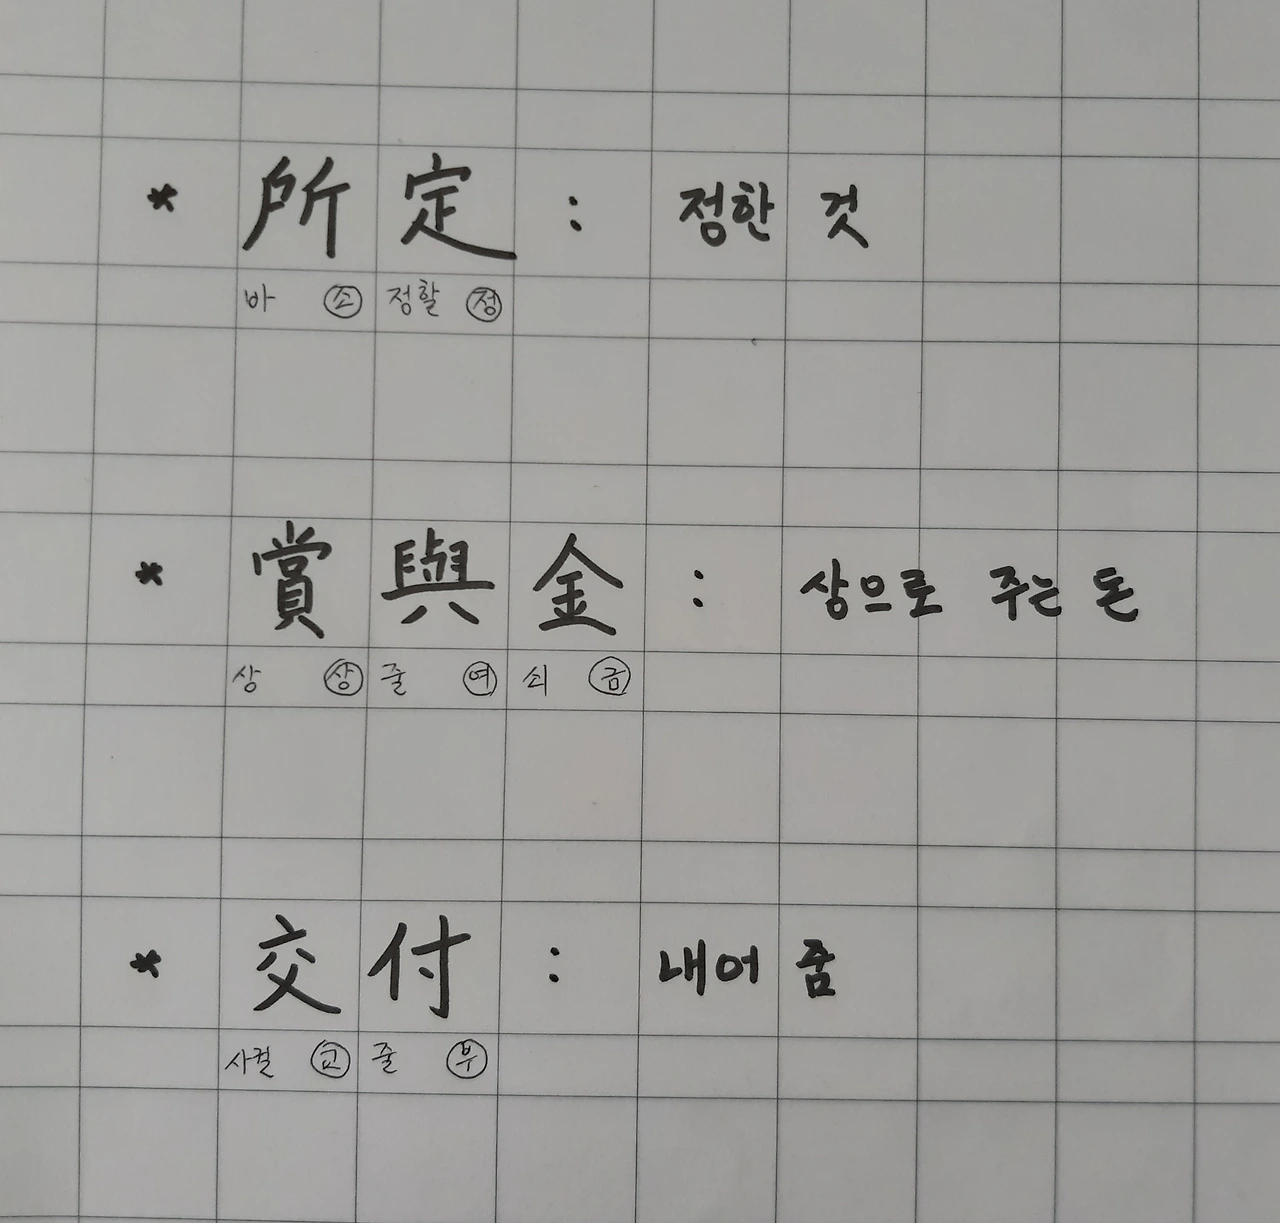 * 所定 : 정한 것
바 소 정할 정
* 賞與金 : 상으로 주는 돈
상 상 줄 여 쇠 금
* 交付 : 내어 줌
사귈 교 줄 부